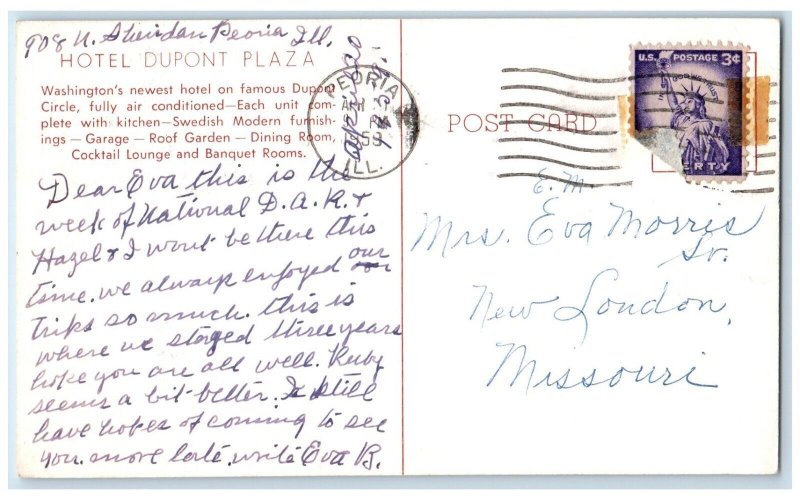 908 N. Sheridan Peoria Ill.
HOTEL DUPONT PLAZA
Washington's newest hotel on famous Dupont
Circle, fully air conditioned—Each unit com-
plete with kitchen—Swedish Modern furnish-
ings — Garage — Roof Garden — Dining Room,
Cocktail Lounge and Banquet Rooms.
Dear Eva this is the
week of National D.A.R. &
Hazel & I wont be there this
time. we always enjoyed our
trips so much. this is
where we stayed three years
hope you are all well. Ruby
seems a bit better. I still
have hopes of coming to see
you. more late. write Eva B.
PEORIA
PM
ILL.
POST CARD
U.S. POSTAGE 3¢
IN GOD WE TRUST
ERTY
E. M.
Mrs. Eva Morris
Sr.
New London,
Missouri